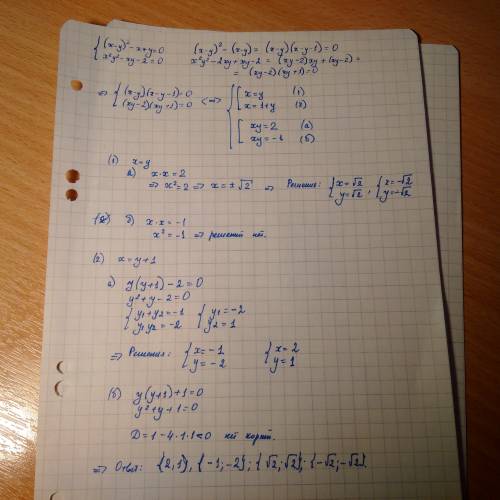 { (x-y)² - x+y = 0
x²y² - xy - 2 = 0
(x-y)² - (x-y) = (x-y)(x-y-1) = 0
x²y² - 2xy + xy - 2 = (xy-2)xy + (xy-2) =
= (xy-2)(xy+1) = 0
=> { (x-y)(x-y-1) = 0
(xy-2)(xy+1) = 0
<=> { [ x = y (1)
x = 1+y (2)
[ xy = 2 (а)
xy = -1 (б)
(1) x = y
а) x·x = 2
=> x² = 2 => x = ±√2 => Решения: { x = √2
y = √2 , { x = -√2
y = -√2
б) x·x = -1
x² = -1 => решений нет.
(2) x = y+1
а) y(y+1) - 2 = 0
y² + y - 2 = 0
{ y₁+y₂ = -1
y₁y₂ = -2
{ y₁ = -2
y₂ = 1
=> Решения: { x = -1
y = -2
{ x = 2
y = 1
(б) y(y+1) + 1 = 0
y² + y + 1 = 0
D = 1 - 4·1·1 < 0 нет корней.
=> Ответ: {2,1}, {-1;-2}; {√2;√2}; {-√2;-√2}.